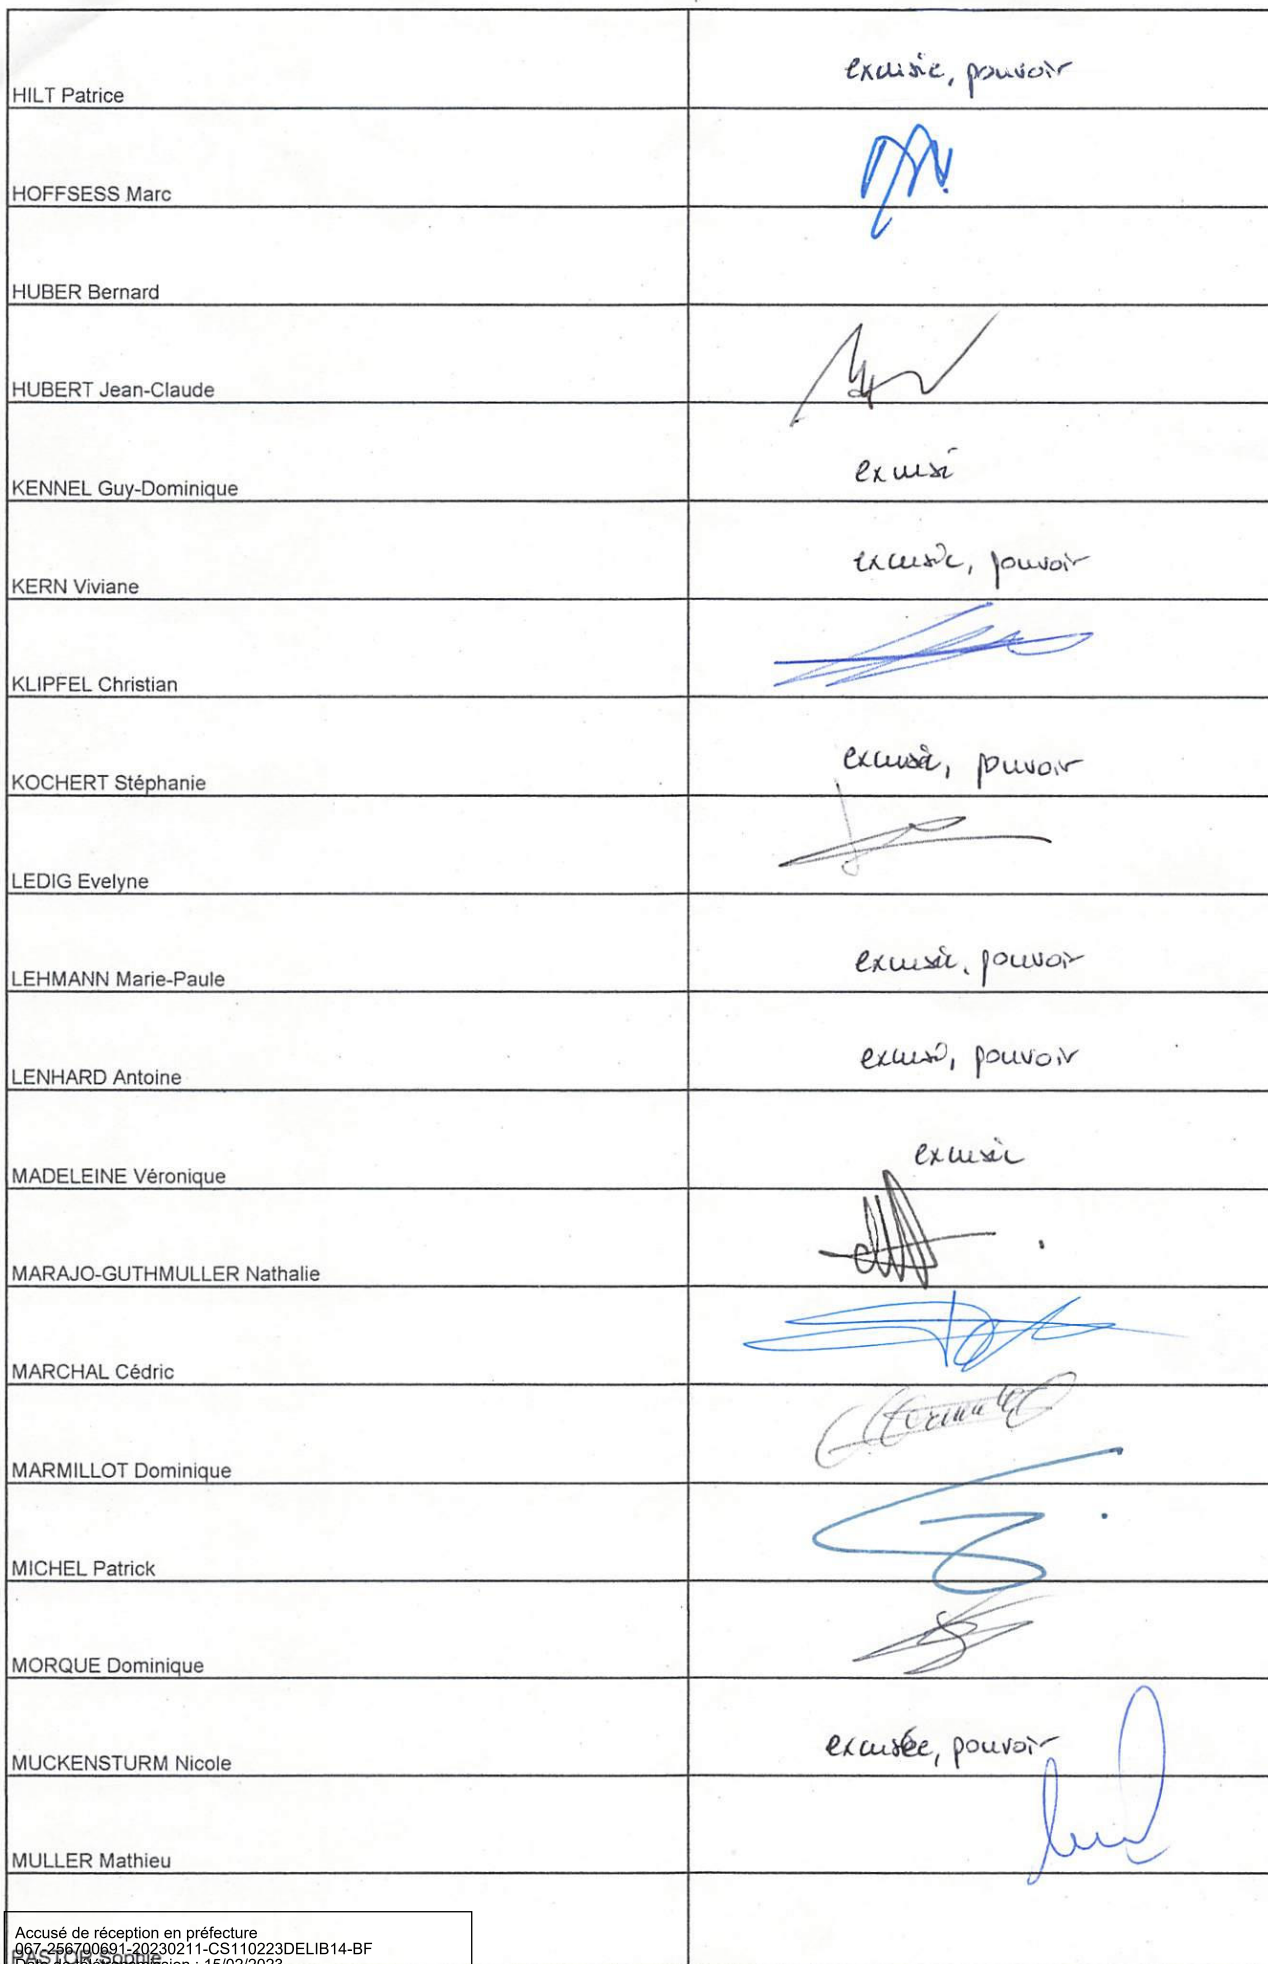 HILT Patrice
excusée, pouvoir
HOFFSESS Marc
HUBER Bernard
HUBERT Jean-Claude
KENNEL Guy-Dominique
excusé
KERN Viviane
excusée, pouvoir
KLIPFEL Christian
KOCHERT Stéphanie
excusée, pouvoir
LEDIG Evelyne
LEHMANN Marie-Paule
excusée, pouvoir
LENHARD Antoine
excusé, pouvoir
MADELEINE Véronique
excusée
MARAJO-GUTHMULLER Nathalie
MARCHAL Cédric
MARMILLOT Dominique
MICHEL Patrick
MORQUE Dominique
MUCKENSTURM Nicole
excusée, pouvoir
MULLER Mathieu
Accusé de réception en préfecture
067-256700691-20230211-CS110223DELIB14-BF
PASTOR Sophie
Date de télétransmission : 15/02/2023